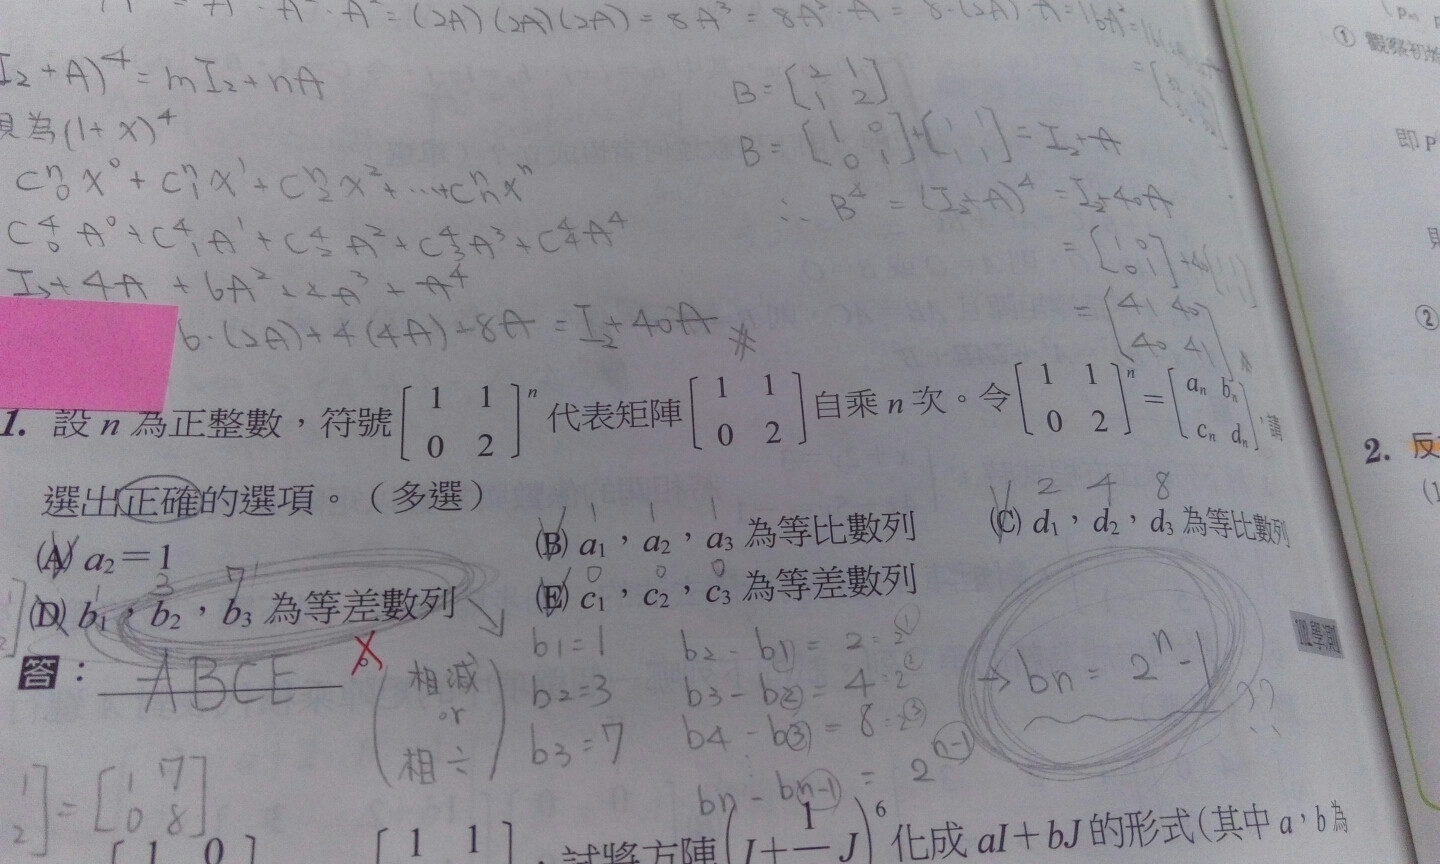 A² · A² = (2A)(2A)(2A) = 8A³ = 8A² · A = 8·(2A)·A = 16A²
I₂+A)⁴ = mI₂+nA
為(1+x)⁴
Cⁿ₀x⁰ + Cⁿ₁x¹ + Cⁿ₂x² + ⋯ + Cⁿₙxⁿ
C⁴₀A⁰ + C⁴₁A¹ + C⁴₂A² + C⁴₃A³ + C⁴₄A⁴
I₂ + 4A + 6A² + 4A³ + A⁴
6·(2A) + 4(4A) + 8A = I₂+40A
B = [2 1; 1 2]
B = [1 0; 0 1] + [1 1; 1 1] = I₂+A
∴ B⁴ = (I₂+A)⁴ = I₂+40A
= [1 0; 0 1] + 40[1 1; 1 1]
= [41 40; 40 41]
1. 設 n 為正整數，符號[1 1; 0 2]ⁿ代表矩陣[1 1; 0 2]自乘 n 次。令[1 1; 0 2]ⁿ=[aₙ bₙ; cₙ dₙ]，請
選出正確的選項。（多選）
1 1 1
2 4 8
(A) a₂=1
(B) a₁，a₂，a₃ 為等比數列
(C) d₁，d₂，d₃ 為等比數列
1 3 7
0 0 0
(D) b₁，b₂，b₃ 為等差數列
(E) c₁，c₂，c₃ 為等差數列
102學測
答：ABCE
(相減 or 相÷)
b₁=1
b₂=3
b₃=7
b₂ - b₁ = 2 = 2¹
b₃ - b₂ = 4 = 2²
b₄ - b₃ = 8 = 2³
⋮
bₙ - bₙ₋₁ = 2ⁿ⁻¹
→ bₙ = 2ⁿ-1 ??
1 2] = [1 7; 0 8]
[1 0
[1 1]
，試將方陣(I+1/ J)⁶化成 aI+bJ 的形式(其中 a，b 為
① 觀察初始
即 P
②
2. 反
(1